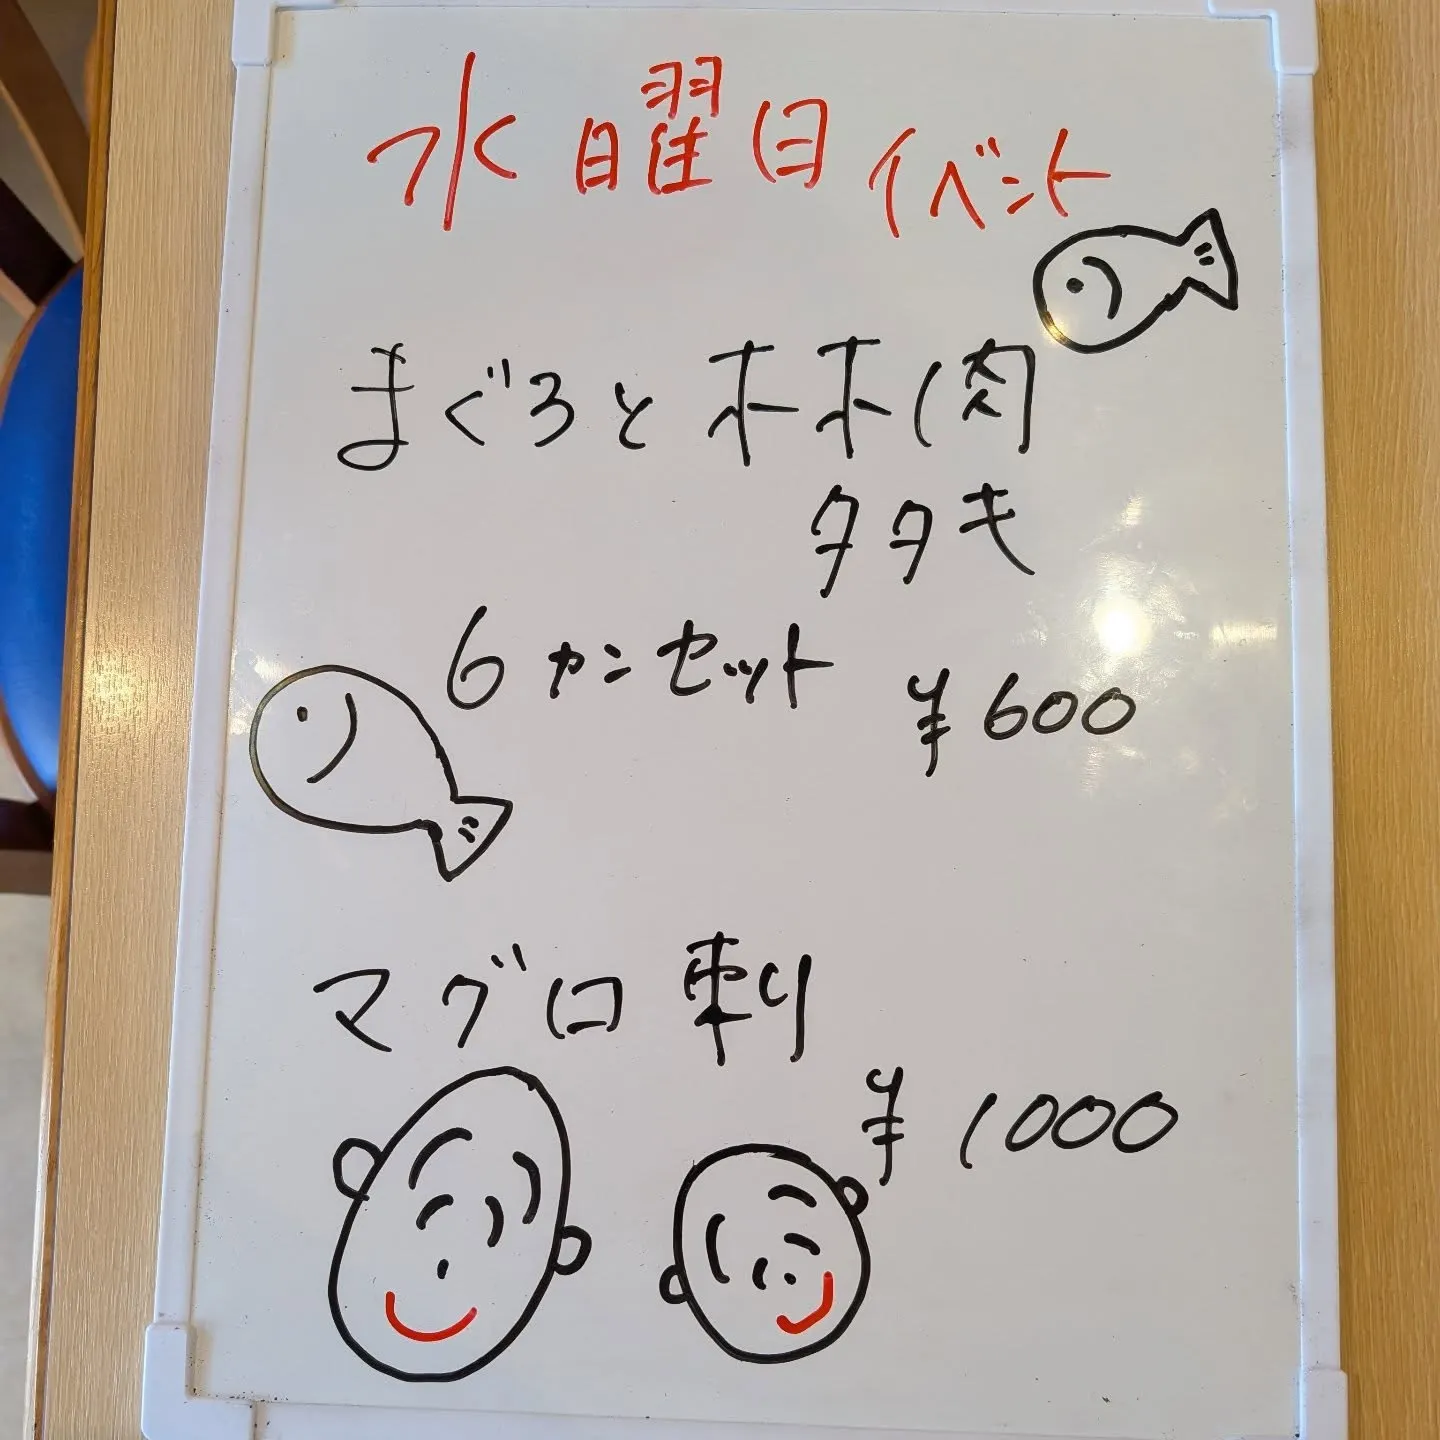 水曜日イベント
まぐろとホホ肉
タタキ
6カンセット ¥600
マグロ刺
¥1000